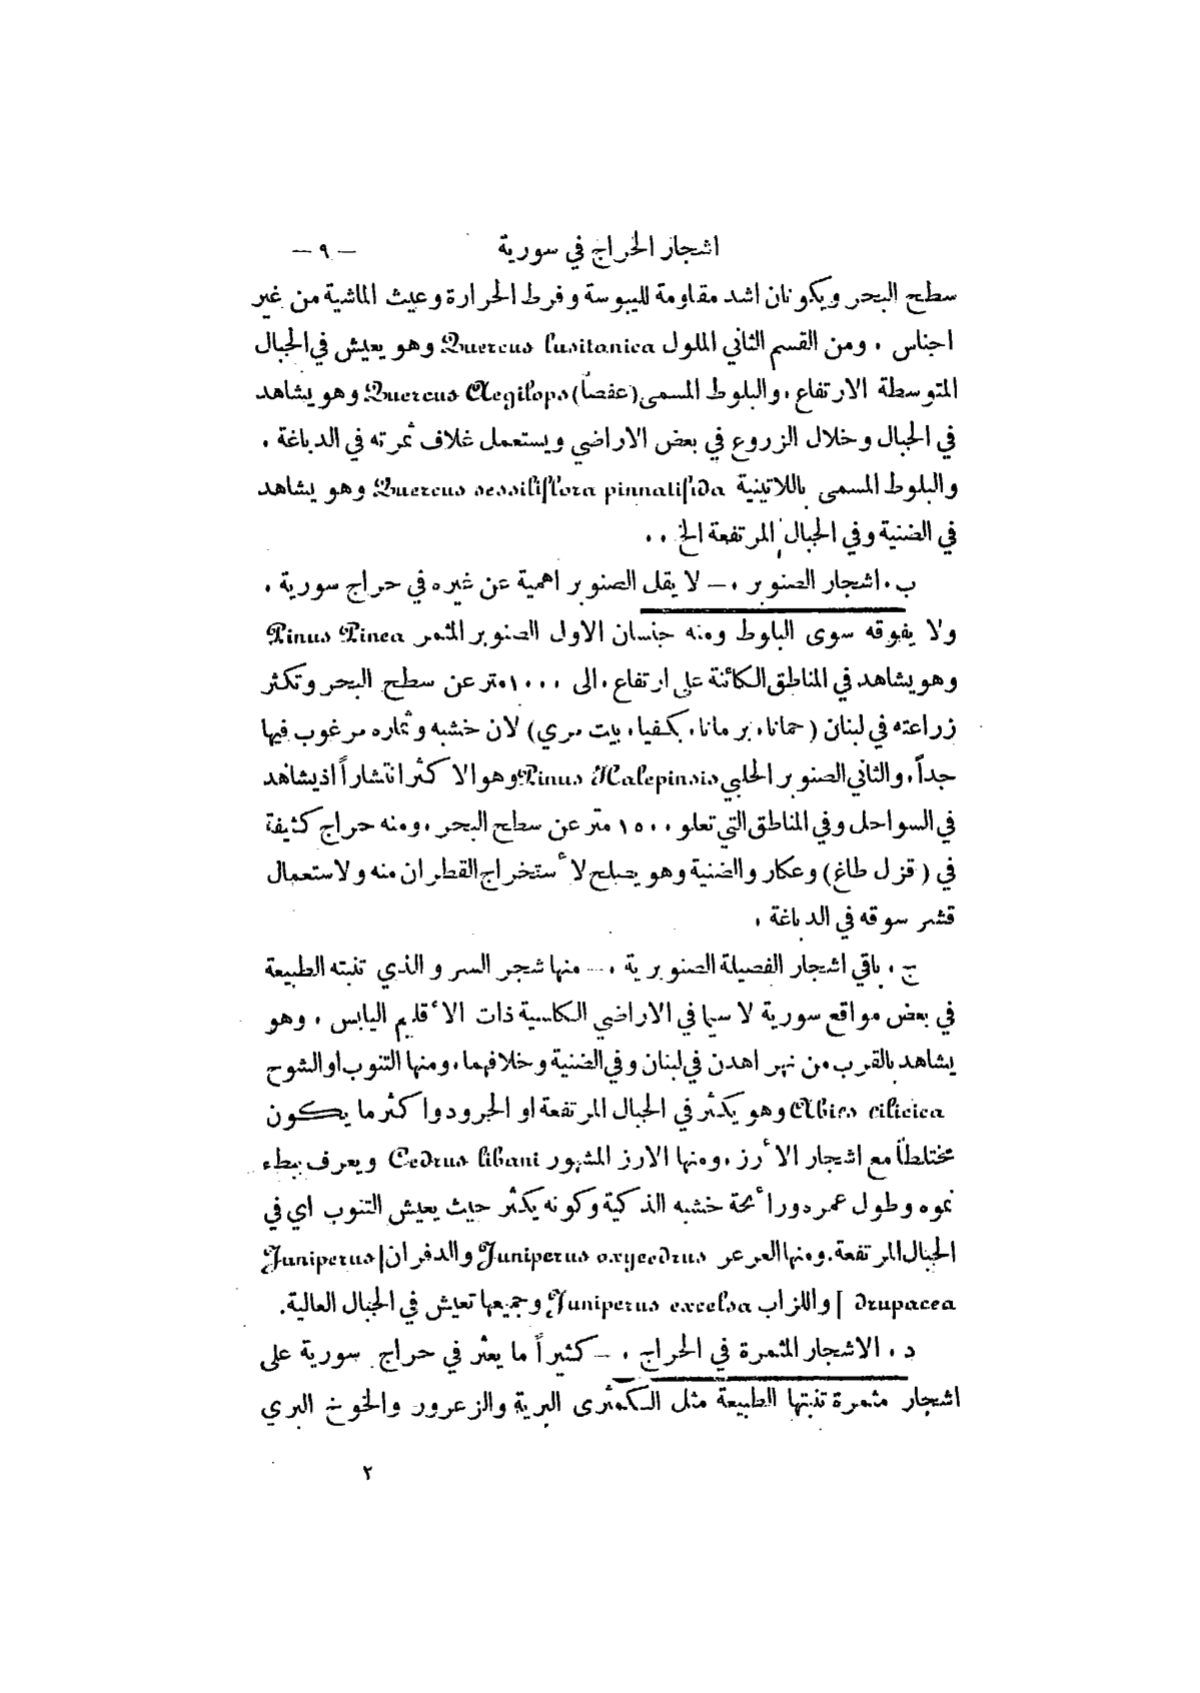 اشجار الحراج في سورية — ٩ —
سطح البحر ويكونان اشد مقاومة لليبوسة وفرط الحرارة وعيث الماشية من غير
اجناس . ومن القسم الثاني الملول Quercus lusitanica وهو يعيش في الجبال
المتوسطة الارتفاع . والبلوط المسمى (عفصاً) Quercus Aegilops وهو يشاهد
في الجبال وخلال الزروع في بعض الاراضي ويستعمل غلاف ثمرته في الدباغة .
والبلوط المسمى باللاتينية Quercus sessiliflora pinnatifida وهو يشاهد
في الضنية وفي الجبال المرتفعة الخ . .
ب . اشجار الصنوبر . — لا يقل الصنوبر اهمية عن غيره في حراج سورية .
ولا يفوقه سوى البلوط ومنه جنسان الاول الصنوبر المثمر Pinus Pinea
وهو يشاهد في المناطق الكائنة على ارتفاع . الى ١٠٠٠ متر عن سطح البحر وتكثر
زراعته في لبنان (حمانا، برمانا، بكفيا، بيت مري) لان خشبه وثماره مرغوب فيها
جداً . والثاني الصنوبر الحلبي Pinus Halepinsis وهو الاكثر انتشاراً اذ يشاهد
في السواحل وفي المناطق التي تعلو ١٥٠٠ متر عن سطح البحر . ومنه حراج كثيفة
في (قزل طاغ) وعكار والضنية وهو يصلح لأستخراج القطران منه ولاستعمال
قشر سوقه في الدباغة .
ج . باقي اشجار الفصيلة الصنوبرية . — منها شجر السرو الذي تنبته الطبيعة
في بعض مواقع سورية لا سيما في الاراضي الكلسية ذات الأقليم اليابس . وهو
يشاهد بالقرب من نهر اهدن في لبنان وفي الضنية وخلافهما . ومنها التنوب او الشوح
Abies cilicica وهو يكثر في الجبال المرتفعة او الجرود واكثر ما يكون
مختلطاً مع اشجار الأرز . ومنها الارز المشهور Cedrus libani ويعرف ببطء
نموه وطول عمره ورائحة خشبه الذكية وكونه يكثر حيث يعيش التنوب اي في
الجبال المرتفعة . ومنها العرعر Juniperus oxycedrus والدفران [Juniperus
drupacea ] واللزاب Juniperus excelsa وجميعها تعيش في الجبال العالية .
د . الاشجار المثمرة في الحراج . — كثيراً ما يعثر في حراج سورية على
اشجار مثمرة تنبتها الطبيعة مثل الكمثرى البرية والزعرور والخوخ البري
٢